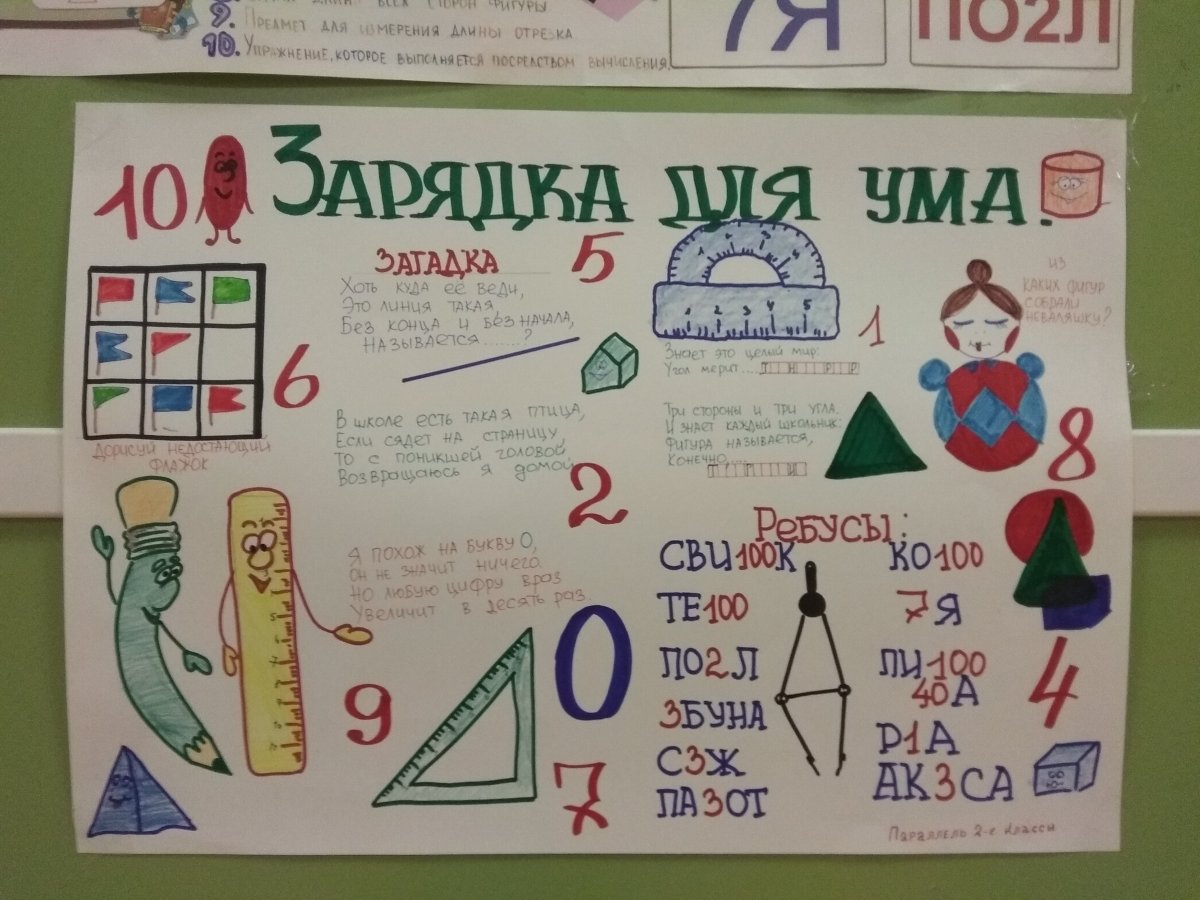 9. Предмет для измерения длины отрезка
10. Упражнение, которое выполняется посредством вычисления.
7Я
ПО2Л
10
Зарядка для ума.
ЗАГАДКА
Хоть куда её веди,
Это линия такая,
Без конца и без начала,
Называется.......?
5
6
Дорисуй недостающий
флажок
В школе есть такая птица,
Если сядет на страницу
То с поникшей головой,
Возвращаюсь я домой
2
Я похож на букву О,
Он не значит ничего.
Но любую цифру враз
Увеличит в десять раз.
0
9
7
1 2 3 4 5
1
Знает это целый мир:
Угол мерит....
Три стороны и три угла.
И знает каждый школьник:
Фигура называется,
Конечно....
Из
каких фигур
собрали
неваляшку?
8
Ребусы:
СВИ100К
ТЕ100
ПО2Л
3БУНА
С3Ж
ПА3ОТ
КО100
7Я
ЛИ100
40А
Р1А
АК3СА
4
Параллель 2-е классы